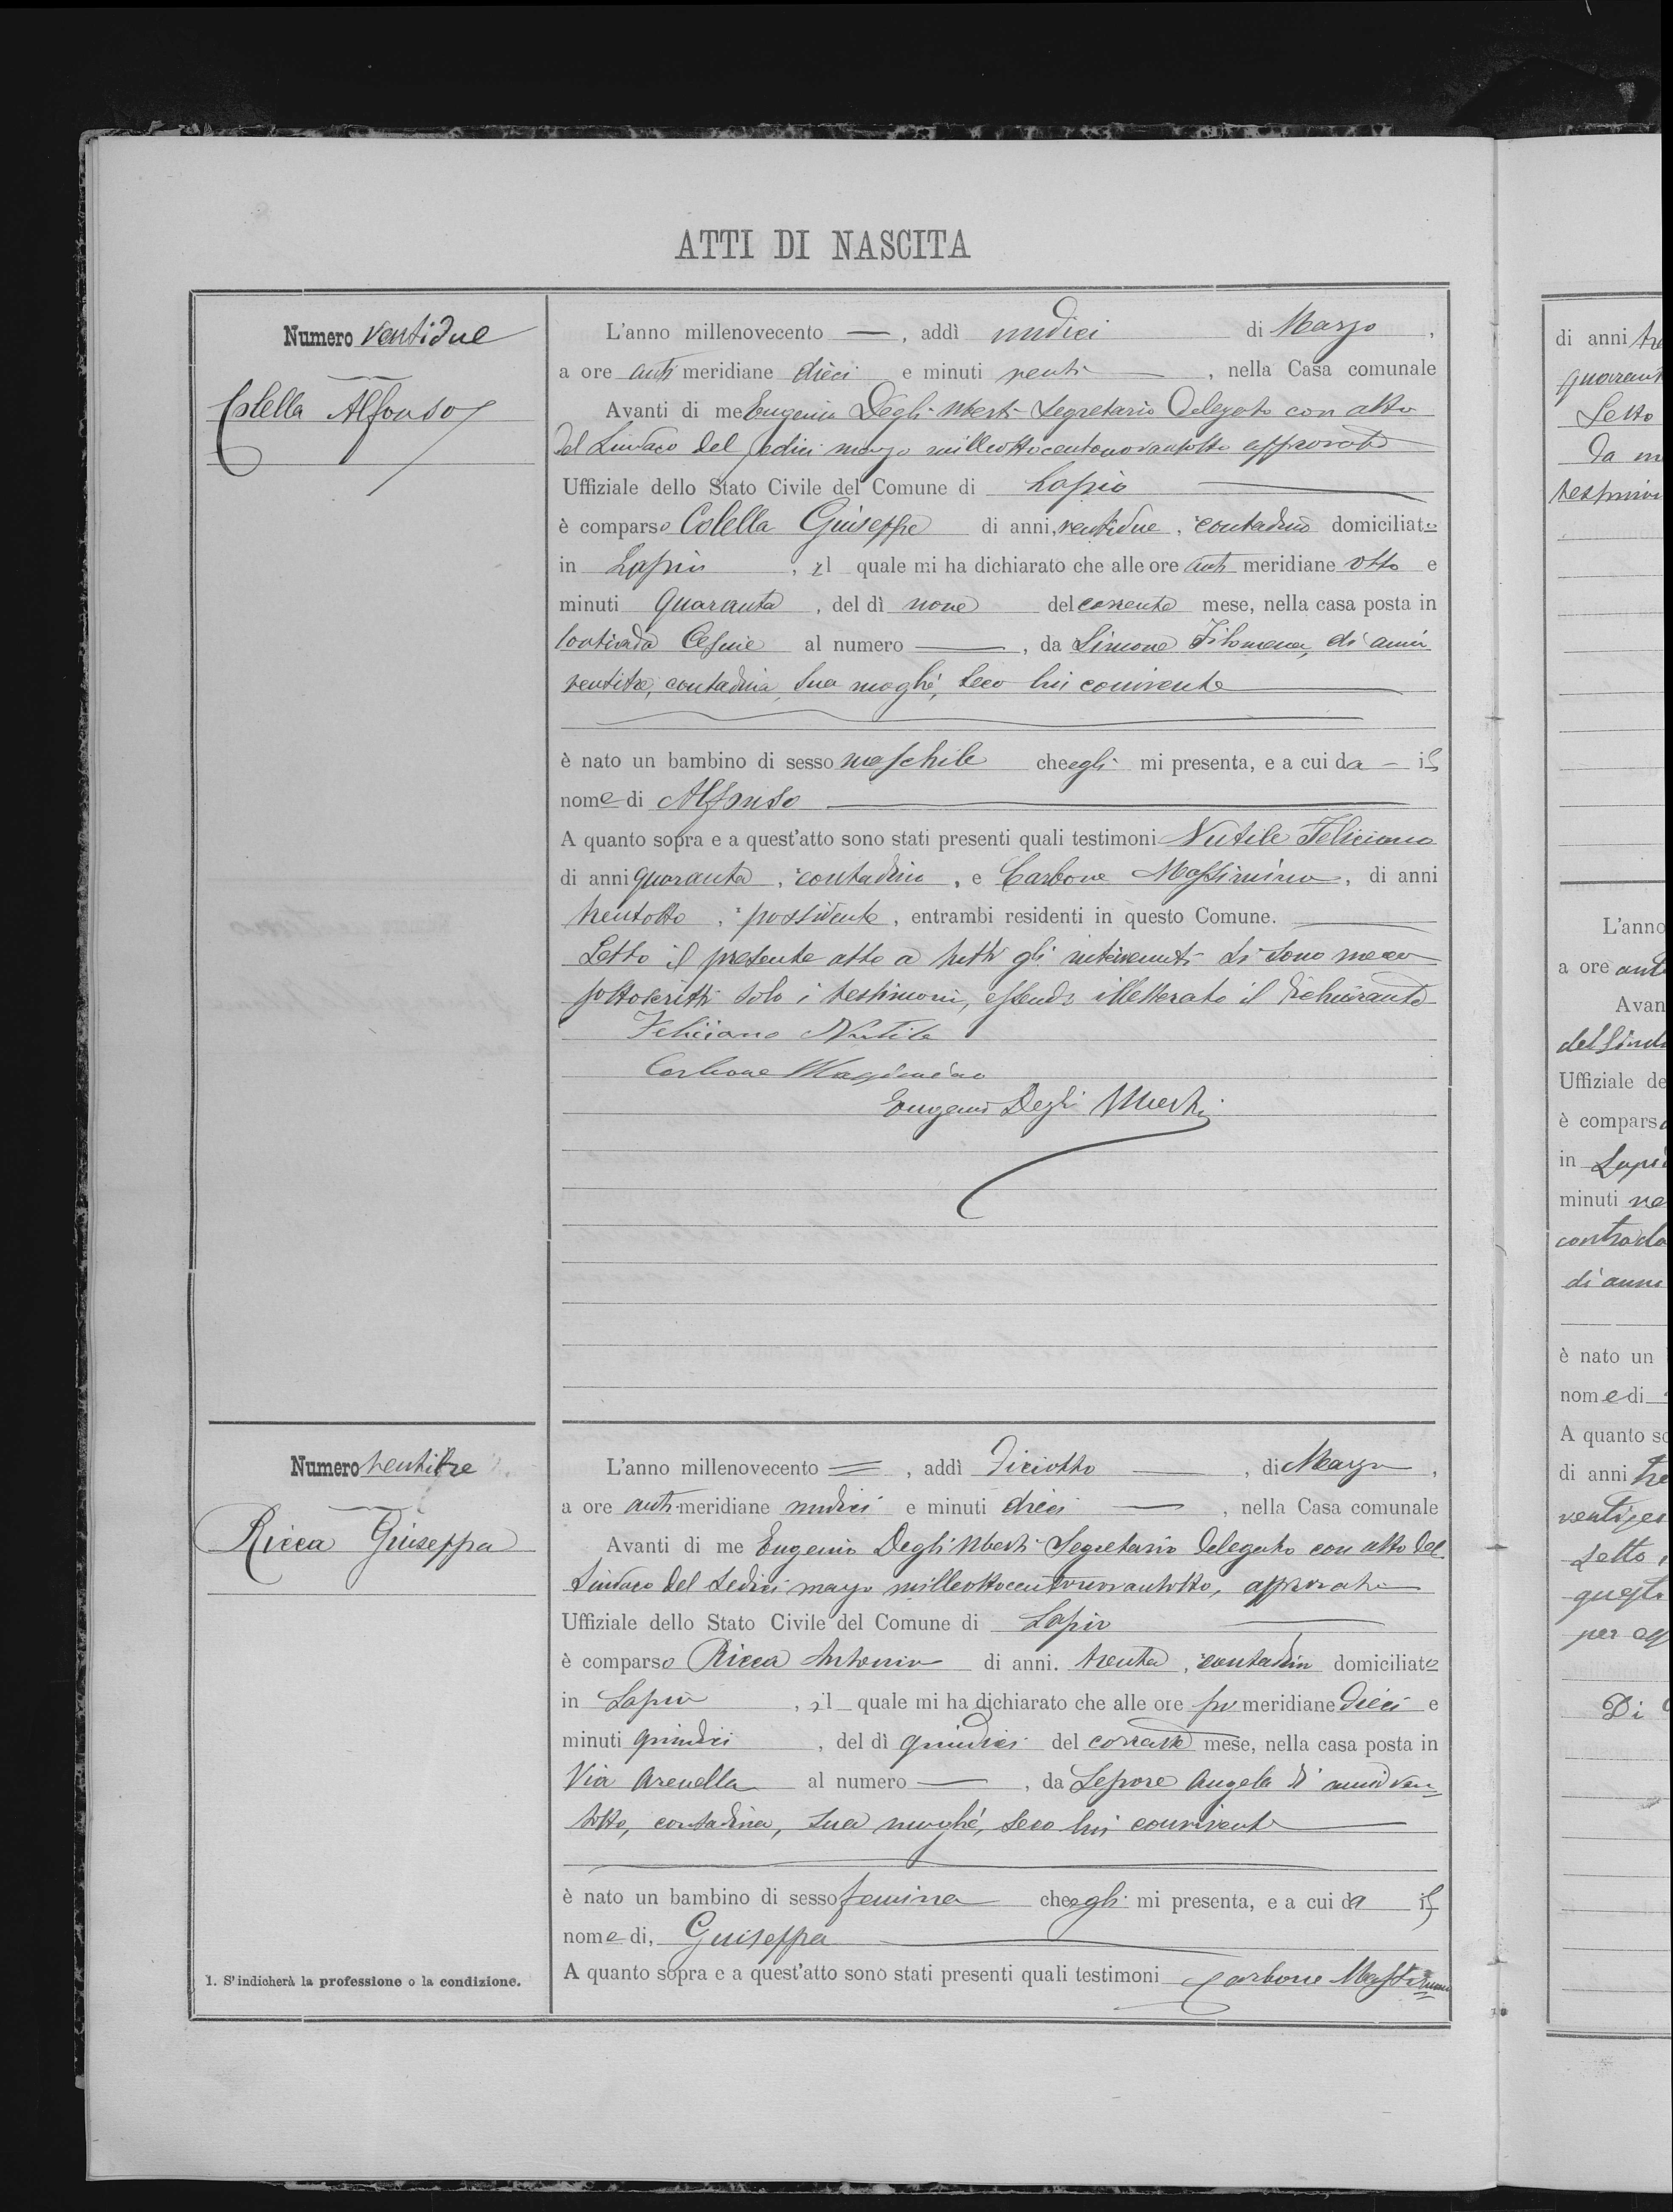 ATTI DI NASCITA
Numero ventidue
Colella Alfonso
L'anno millenovecento —, addì undici di Marzo,
a ore anti meridiane dieci e minuti venti —, nella Casa comunale
Avanti di me Eugenio Degli Uberti Segretario Delegato con atto
del Sindaco del sedici marzo milleottocentonovantotto approvato
Uffiziale dello Stato Civile del Comune di Lapio
è comparso Colella Giuseppe di anni ventidue, contadino domiciliato
in Lapio, il quale mi ha dichiarato che alle ore anti meridiane otto e
minuti quaranta, del dì nove del corrente mese, nella casa posta in
contrada al numero —, da Simone Filomena, di anni
ventitre, contadina, sua moglie, seco lui convivente
è nato un bambino di sesso maschile che egli mi presenta, e a cui da — il
nome di Alfonso
A quanto sopra e a quest'atto sono stati presenti quali testimoni Nutile Feliciano
di anni quaranta, contadino, e Carbone Massimino, di anni
trentotto, possidente, entrambi residenti in questo Comune.
Letto il presente atto a tutti gli intervenuti si sono meco
sottoscritti solo i testimoni, essendo illetterato il dichiarante
Feliciano Nutile
Carbone Massimino
Eugenio Degli Uberti
Numero ventitre
Ricca Giuseppa
L'anno millenovecento =, addì diciotto —, di Marzo,
a ore anti-meridiane undici e minuti dieci —, nella Casa comunale
Avanti di me Eugenio Degli Uberti Segretario delegato con atto del
Sindaco del sedici marzo milleottocentonovantotto, approvato
Uffiziale dello Stato Civile del Comune di Lapio
è comparso Ricca Antonio di anni. trenta, contadino domiciliato
in Lapio, il quale mi ha dichiarato che alle ore po meridiane dieci e
minuti quindici, del dì quindici del corrente mese, nella casa posta in
Via Arenella al numero —, da Lepore Angela di anni ven-
totto, contadina, sua moglie, seco lui convivente
è nato un bambino di sesso femina che egli mi presenta, e a cui da il
nome di, Giuseppa
A quanto sopra e a quest'atto sono stati presenti quali testimoni Carbone Massimino
1. S'indicherà la professione o la condizione.
di anni
quarant
Letto
da m
testimoni
L'anno
a ore anti
Avan
del Sinda
Uffiziale de
è comparso
in Lapio
minuti ve
contrada
di anni
è nato un
nome di
A quanto so
di anni tre
Letto
questo
per
Di